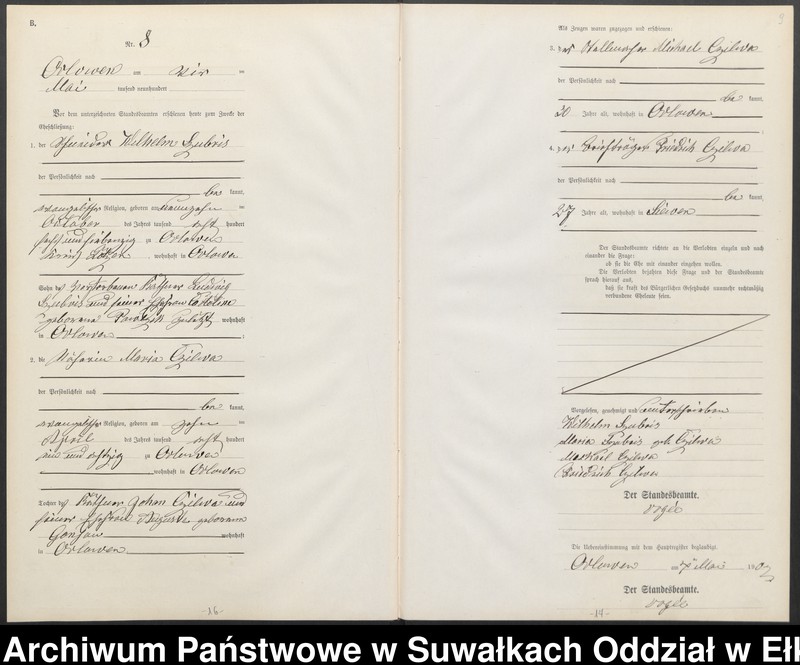 B.
Nr. 8
Orlowen am vier ten
Mai tausend neunhundert
Vor dem unterzeichneten Standesbeamten erschienen heute zum Zwecke der
Eheschließung:
1. der Schneider Wilhelm
der Persönlichkeit nach
be kannt,
evangelischer Religion, geboren am neunzehn ten
October des Jahres tausend acht hundert
sechs und siebenzig zu Orlowen
Kreis Lötzen, wohnhaft in Orlowen
Sohn des verstorbenen Käthner Friedrich
und seiner Ehefrau
geborene zuletzt wohnhaft
in Orlowen;
2. die Näherin Maria Czilwa
der Persönlichkeit nach
be kannt,
evangelischer Religion, geboren am zehn ten
April des Jahres tausend acht hundert
ein und achtzig zu Orlowen
wohnhaft in Orlowen
Tochter des Käthner Johann Czilwa und
seiner Ehefrau Auguste geborene
wohnhaft
in Orlowen
-16-
9
Als Zeugen waren zugezogen und erschienen:
3. der Michael Czilwa
der Persönlichkeit nach
be kannt,
50 Jahre alt, wohnhaft in Orlowen;
4. der Briefträger Friedrich Czilwa
der Persönlichkeit nach
be kannt,
27 Jahre alt, wohnhaft in
Der Standesbeamte richtete an die Verlobten einzeln und nach
einander die Frage:
ob sie die Ehe mit einander eingehen wollen.
Die Verlobten bejahten diese Frage und der Standesbeamte
sprach hierauf aus,
daß sie kraft des Bürgerlichen Gesetzbuchs nunmehr rechtmäßig
verbundene Eheleute seien.
Vorgelesen, genehmigt und unterschrieben
Wilhelm
Maria geb. Czilwa
Michael Czilwa
Friedrich Czilwa
Der Standesbeamte.
Die Uebereinstimmung mit dem Hauptregister beglaubigt.
Orlowen am Mai 190
Der Standesbeamte.
-17-
Archiwum Państwowe w Suwałkach Oddział w Ełk